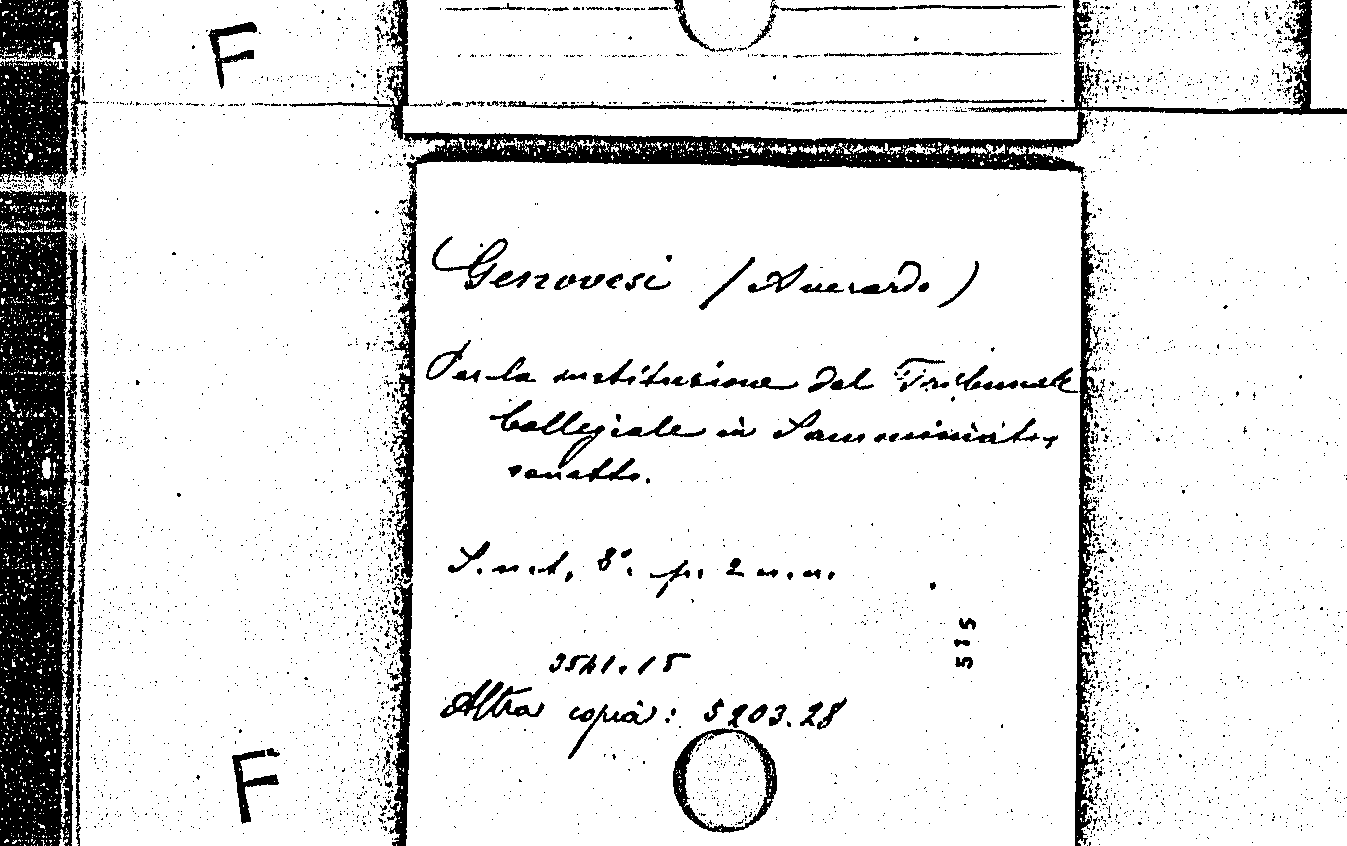 F
Genovesi (Averardo)
Per la restituzione del Tribunale
Collegiale in Samminiato,
sonetto.
S. n. t., 8°. p. 2 n. n.
575
3541.15
Altra copia: 5203.28
F